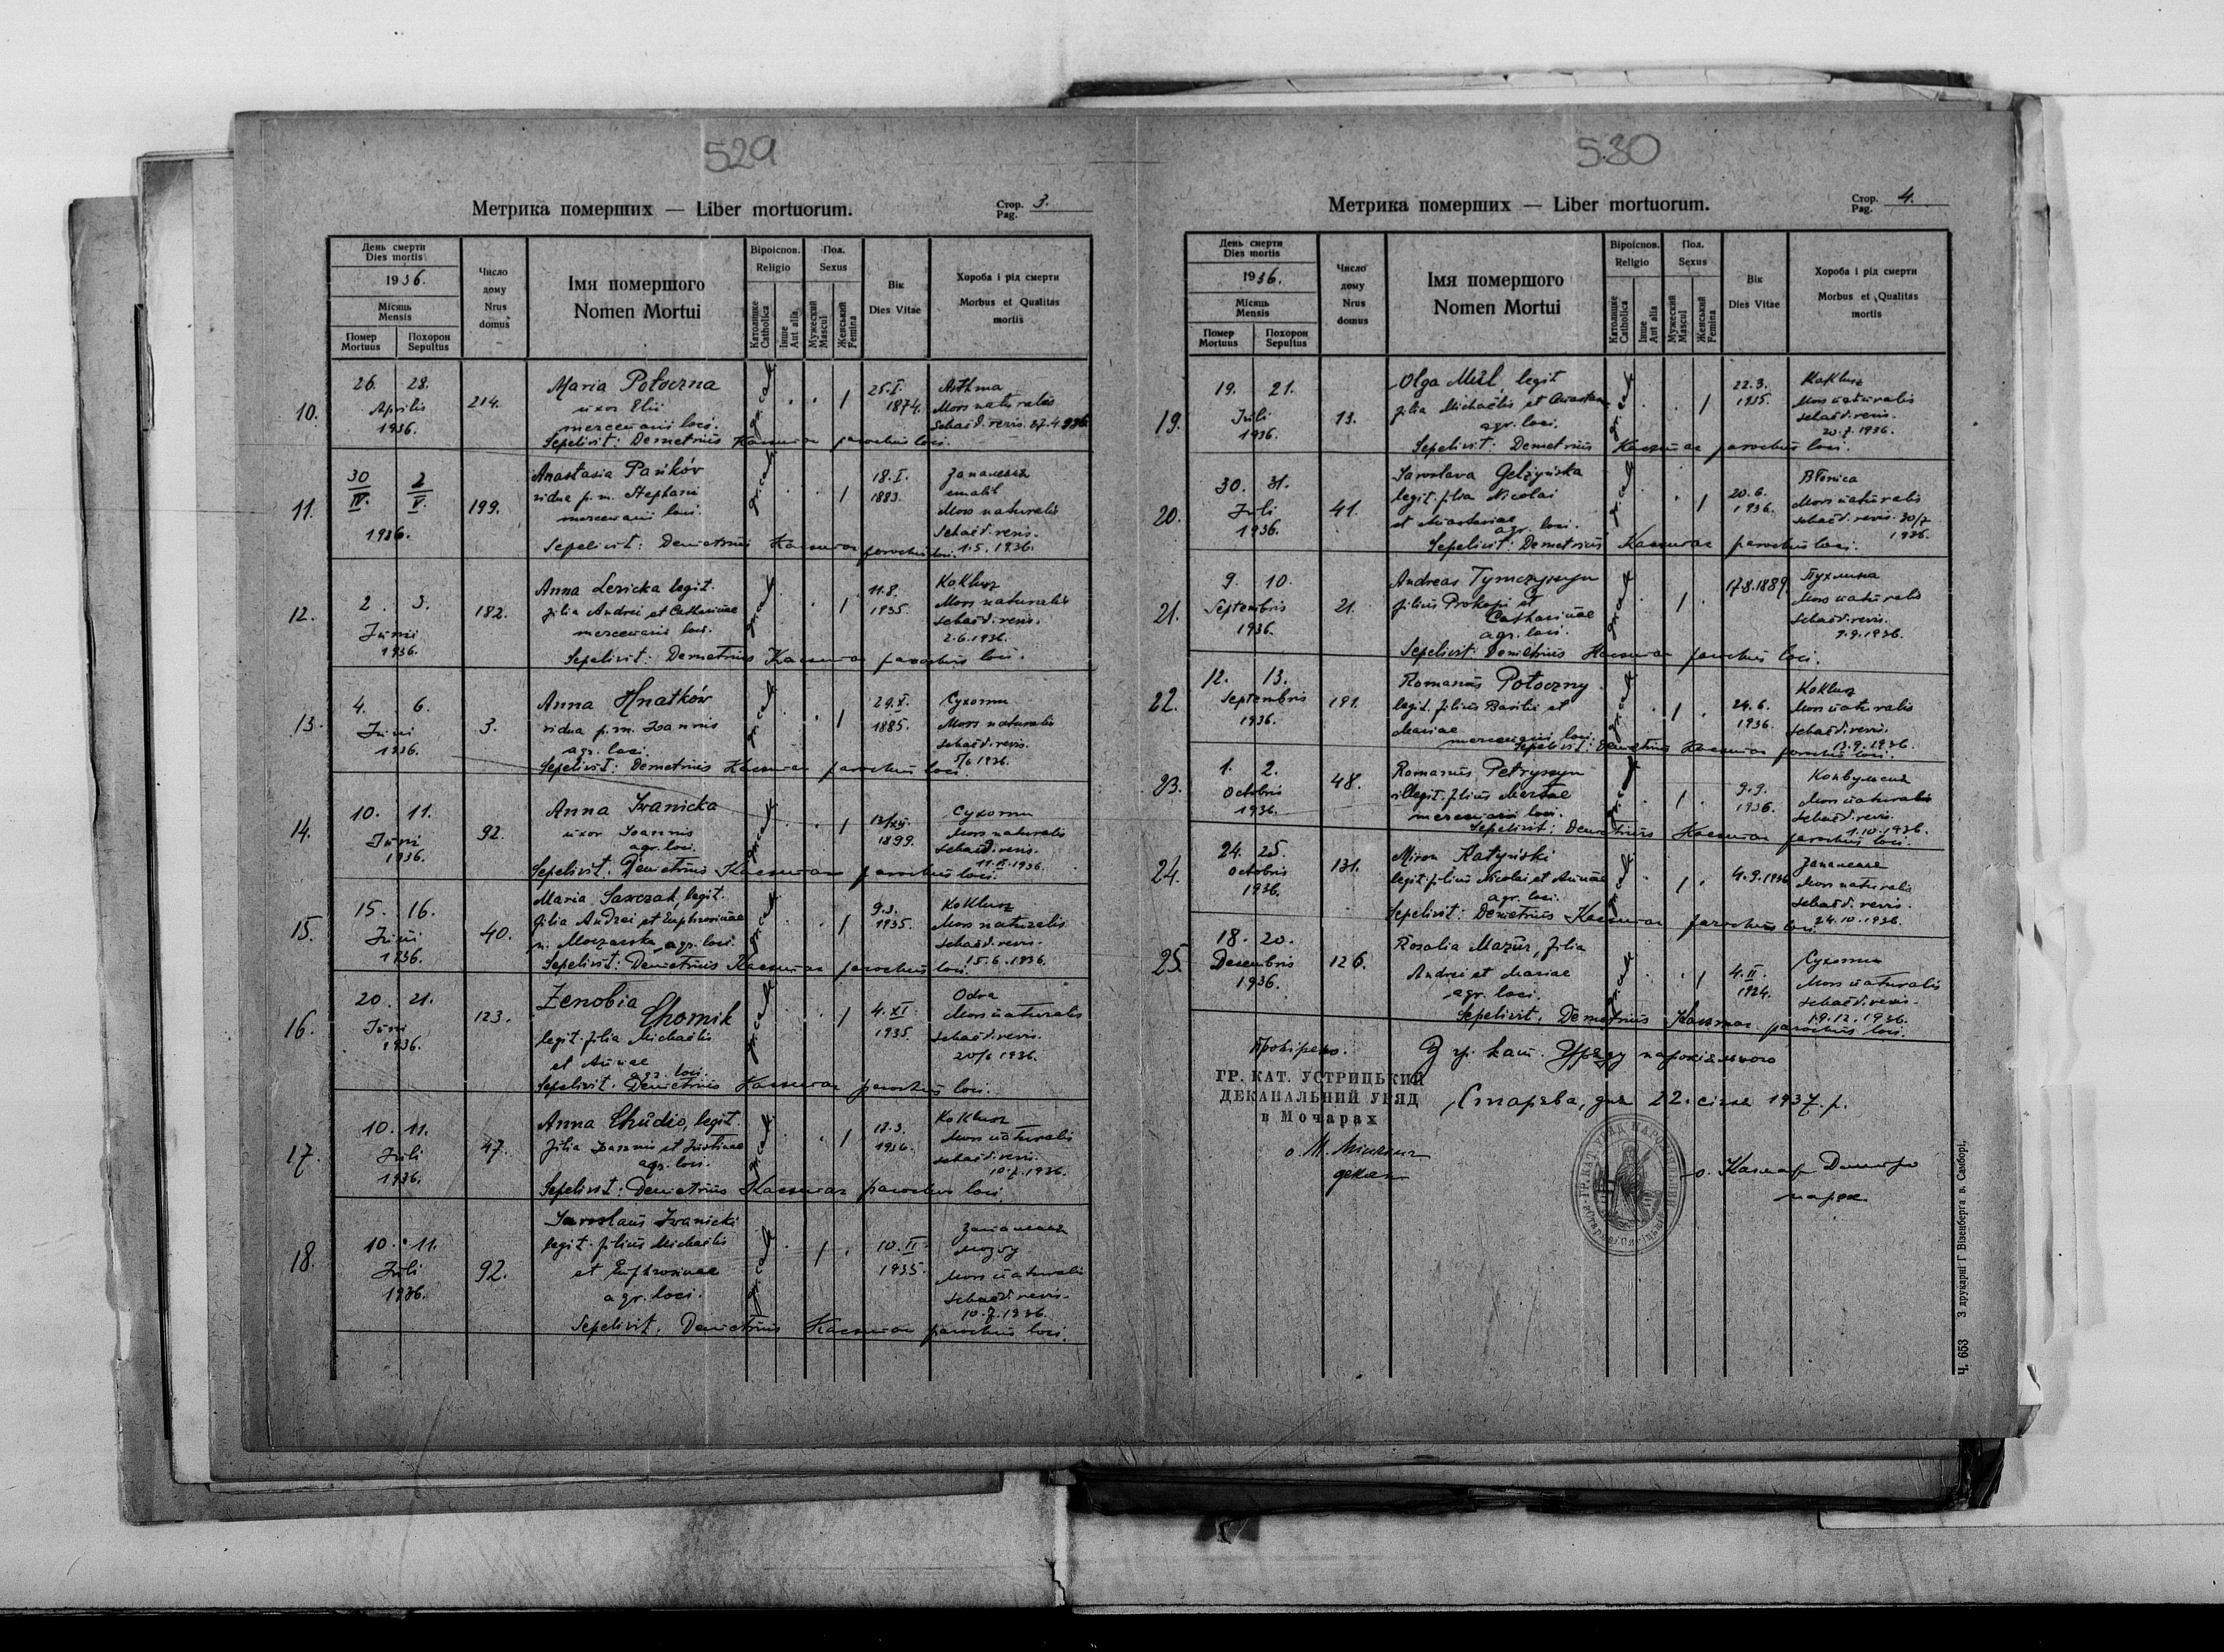 529
Метрика померших — Liber mortuorum.
Стор. 3.
Pag.
День смерти
Dies mortis
1936.
Місяць
Mensis
Помер
Mortuus
Похорон
Sepultus
Число
дому
Nrus
domus
Імя помершого
Nomen Mortui
Віроіспов.
Religio
Католицке
Catholica
Інше
Aut alia
Пол.
Sexus
Мужеский
Mascul
Женський
Femina
Вік
Dies Vitae
Хороба і рід смерти
Morbus et Qualitas
mortis
10.
26. 28.
Aprilis
1936.
214.
Maria Potoczna
uxor Elii
mercenarii loci.
gr. cath
25.I.
1874.
Asthma
Mors naturalis
Schaed. revis. 27.4.936
Sepelivit: Demetrius Kaczmar parochus loci.
11.
30 2
IV. V.
1936.
199.
Anastasia Pańków
vidua p. m. Stephani
mercenarii loci.
gr. cath
18.I.
1883.
Запаленя
Mors naturalis
Schaed. revis.
1.5.1936.
Sepelivit: Demetrius Kaczmar parochus loci.
12.
2. 3.
Junii
1936.
182.
Anna Lezicka legit.
filia Andrei et Catharinae
mercenarii loci.
gr. cath
11.8.
1935.
Koklusz
Mors naturalis
Schaed. revis.
2.6.1936.
Sepelivit: Demetrius Kaczmar parochus loci.
13.
4. 6.
Junii
1936.
3.
Anna Hnatków
vidua p. m. Joannis
agr. loci.
gr. cath
29.X.
1885.
Сухоти
Mors naturalis
Schaed. revis.
5/6 1936.
Sepelivit: Demetrius Kaczmar parochus loci.
14.
10. 11.
Junii
1936.
92.
Anna Iwanicka
uxor Joannis
agr. loci.
gr. cath
13/XII.
1899.
Сухоти
Mors naturalis
Schaed. revis.
11.VI.1936.
Sepelivit: Demetrius Kaczmar parochus loci.
15.
15. 16.
Junii
1936.
40.
Maria Sawczak, legit.
filia Andrei et Euphrosinae
agr. loci.
gr. cath
9.3.
1935.
Koklusz
Mors naturalis
Schaed. revis.
15.6.1936.
Sepelivit: Demetrius Kaczmar parochus loci.
16.
20. 21.
Junii
1936.
123.
Zenobia
Chomik
legit. filia Michaelis
et Annae
agr. loci.
gr. cath
4.XI.
1935.
Odra
Mors naturalis
Schaed. revis.
20/6 1936.
Sepelivit: Demetrius Kaczmar parochus loci.
17.
10. 11.
Juli
1936.
47.
Anna Chudio, legit.
filia Joannis et Justinae
agr. loci.
gr. cath
12.3.
1936.
Koklusz
Mors naturalis
Schaed. revis.
10.7.1936.
Sepelivit: Demetrius Kaczmar parochus loci
18.
10. 11.
Juli
1936.
92.
Jaroslaus Iwanicki
legit. filius Michaelis
et Euphrosinae
agr. loci.
gr. cath
10.II.
1935.
Запаленя
мозгу
Mors naturalis
Schaed. revis.
10.7.1936.
Sepelivit. Demetrius Kaczmar parochus loci.
530
Метрика померших — Liber mortuorum.
Стор. 4.
Pag.
День смерти
Dies mortis
1936.
Місяць
Mensis
Помер
Mortuus
Похорон
Sepultus
Число
дому
Nrus
domus
Імя помершого
Nomen Mortui
Віроіспов.
Religio
Католицке
Catholica
Інше
Aut alia
Пол.
Sexus
Мужеский
Mascul
Женський
Femina
Вік
Dies Vitae
Хороба і рід смерти
Morbus et Qualitas
mortis
19.
19. 21.
Juli
1936.
13.
Olga legit
filia Michaelis et
agr. loci.
gr. cath
22.3.
1935.
Koklusz
Mors naturalis
Schaed. revis.
20.7.1936.
Sepelivit: Demetrius Kaczmar parochus loci.
20.
30. 31.
Juli
1936.
41.
Jaroslava Gelzyńska
legit. filia Nicolai
et Anastasiae
agr. loci.
gr. cath
20.6.
1936.
Błonica
Mors naturalis
Schaed. revis. 30/7
1936.
Sepelivit: Demetrius Kaczmar parochus loci.
21.
9. 10.
Septembris
1936.
21.
Andreas Tymczyszyn
filius Prokopi et
Catharinae
agr. loci.
gr. cath
17.8.1889
Пухлина
Mors naturalis
Schaed. revis.
9.9.1936.
Sepelivit: Demetrius Kaczmar parochus loci.
22.
12. 13.
Septembris
1936.
191.
Romanus Potoczny
legit. filius Basilii et
Mariae
mercenarii loci.
gr. cath
24.6.
1936.
Koklusz
Mors naturalis
Schaed. revis.
13.9.1936.
Sepelivit: Demetrius Kaczmar parochus loci.
23.
1. 2.
Octobris
1936.
48.
Romanus Petryszyn
illegit. filius Martae
mercenarii loci.
gr. cath
9.9.
1936.
Конвульсия
Mors naturalis
Schaed. revis.
1.10.1936.
Sepelivit: Demetrius Kaczmar parochus loci.
24.
24. 25.
Octobris
1936.
131.
Miron Ratyński
legit. filius Nicolai et Annae
agr. loci.
gr. cath
4.9.1936
Запаленя
Mors naturalis
Schaed. revis.
24.10.1936.
Sepelivit: Demetrius Kaczmar parochus loci
25.
18. 20.
Decembris
1936.
126.
Rozalia Mazur, filia
Andrei et Mariae
agr. loci.
gr. cath
4.II.
1924.
Сухоти
Mors naturalis
Schaed. revis.
19.12.1936.
Sepelivit. Demetrius Kaczmar parochus loci.
Провірено.
З гр. кат. Уряду парохіяльного
ГР. КАТ. УСТРИЦЬКИЙ
ДЕКАНАЛЬНИЙ УРЯД
в Мочарах
Старява, дня 22. січня 1937. р.
о. М.
декан
о. Качмар Димитро
парох
Ч. 653 З друкарні Г Візенберга в. Самборі.